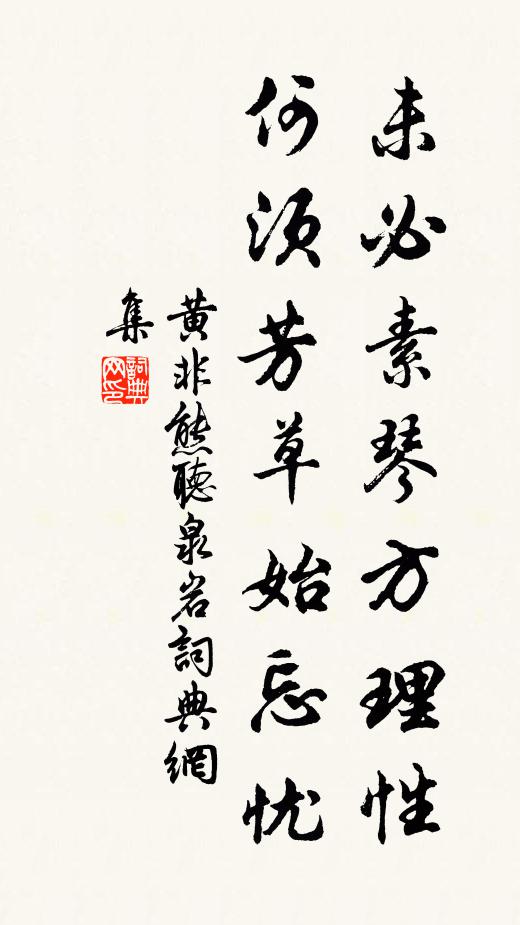 未必素琴方理性
何须芳草始忘忧
黄非熊聽泉岩詞典網
集
詞典
网印